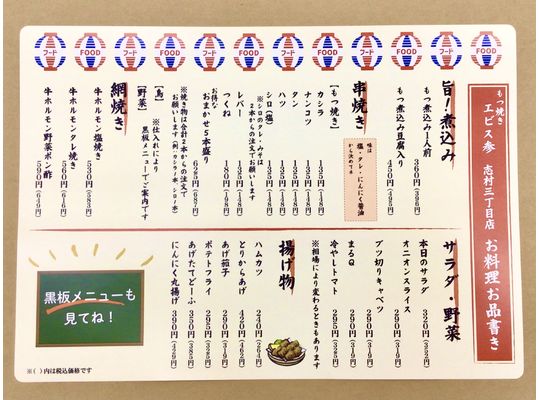 フード FOOD フード FOOD フード FOOD フード FOOD フード FOOD フード FOOD
もつ焼き
エビス参 志村三丁目店 お料理お品書き
旨！煮込み
もつ煮込み1人前 360円(396円)
もつ煮込み豆腐入り 450円(495円)
串焼き
味は
塩・タレ・にんにく醤油
から決めて下さい
【もつ焼き】
カシラ 135円(148円)
ナンコツ 135円(148円)
タン 135円(148円)
ハツ 135円(148円)
シロ(塩) 135円(148円)
※シロのタレ・みそは
2本からの注文でお願いします
レバー 135円(148円)
つくね 180円(198円)
お得な
おまかせ5本盛り 625円(687円)
※焼き物は合計2本からの注文で
お願いします(例:カシラ1本・シロ1本)
【鳥】
【野菜】
※仕入れにより
黒板メニューでご案内です
網焼き
牛ホルモン塩焼き 530円(583円)
牛ホルモンタレ焼き 560円(616円)
牛ホルモン野菜ポン酢 590円(649円)
サラダ・野菜
本日のサラダ 320円(352円)
オニオンスライス 290円(319円)
ブツ切りキャベツ 290円(319円)
まるQ 290円(319円)
冷やしトマト 295円
※相場により変わるときもあります
揚げ物
ハムカツ 240円(264円)
とりからあげ 420円(462円)
あげ茄子 290円(319円)
ポテトフライ 295円
あげたてどーふ 350円(385円)
にんにく丸揚げ 390円(429円)
黒板メニューも
見てね！
※( )内は税込価格です